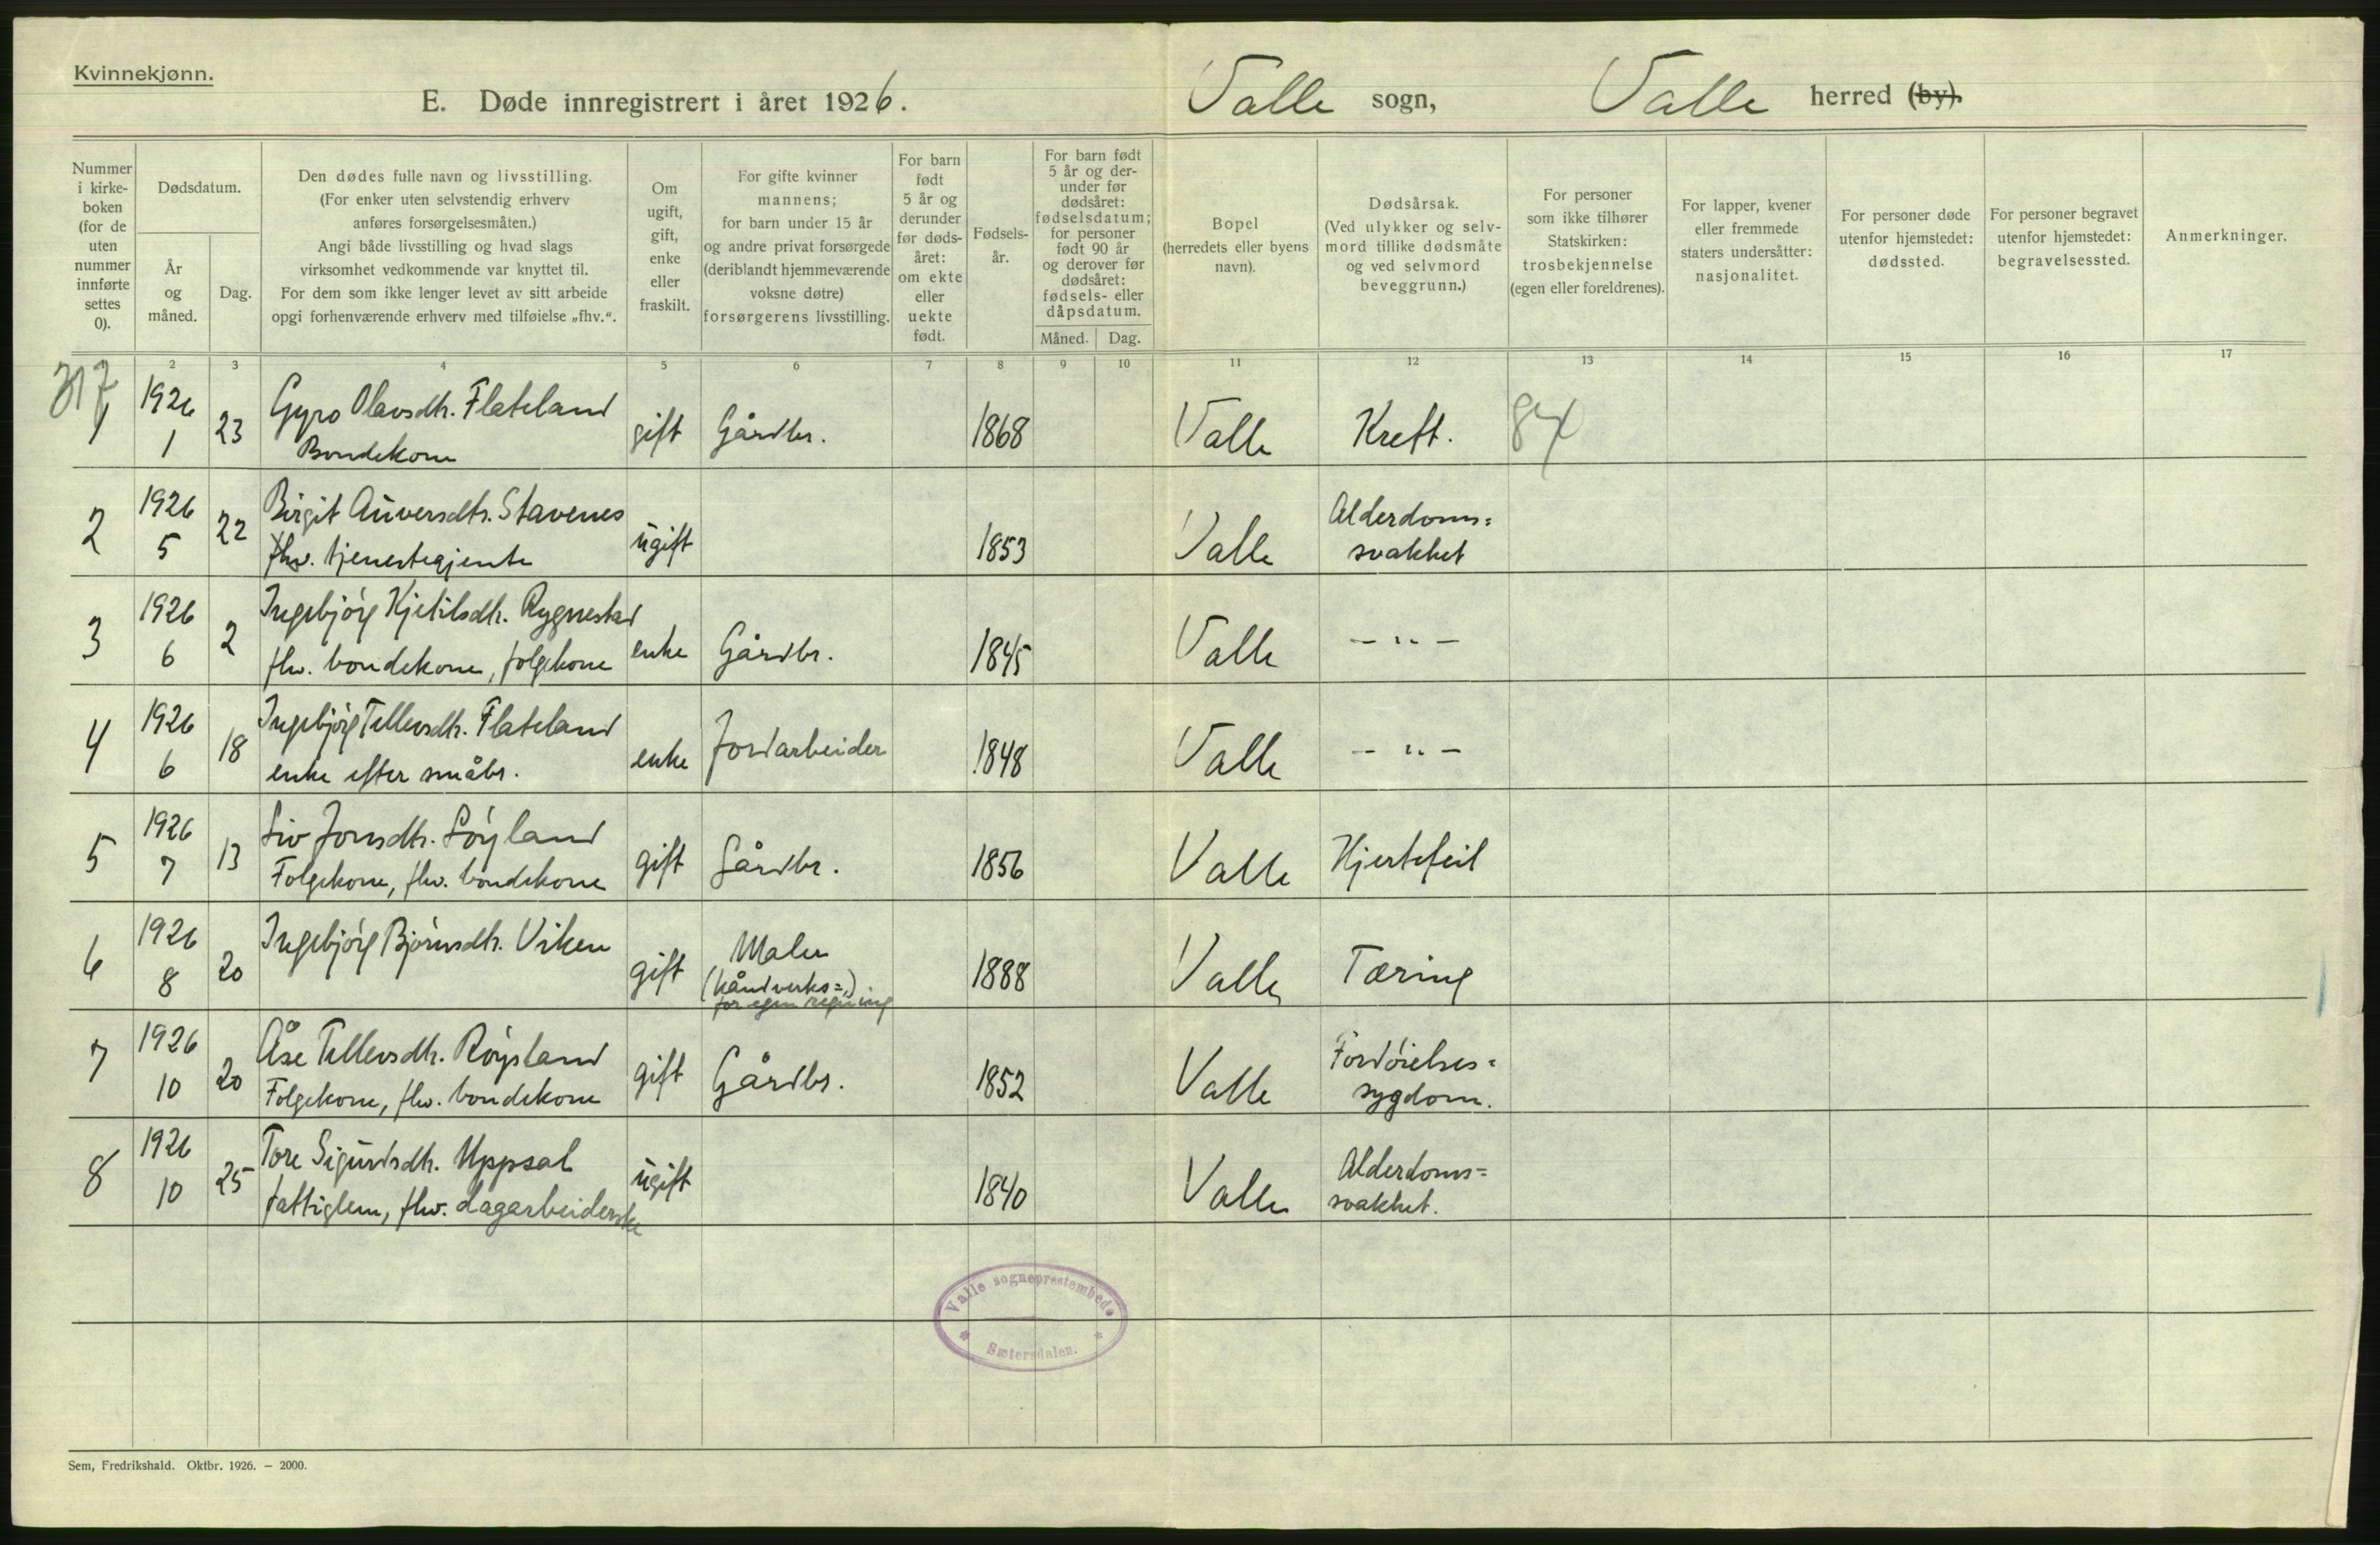 Kvinnekjønn.
E. Døde innregistrert i året 1926.
Valle sogn, Valle herred (by).
Nummer i kirke-boken (for de uten nummer innførte settes 0).
Dødsdatum.
År og måned.
Dag.
Den dødes fulle navn og livsstilling.
(For enker uten selvstendig erhverv
anføres forsørgelsesmåten.)
Angi både livsstilling og hvad slags
virksomhet vedkommende var knyttet til.
For dem som ikke lenger levet av sitt arbeide
opgi forhenværende erhverv med tilføielse „fhv.“.
Om ugift, gift, enke eller fraskilt.
For gifte kvinner
mannens;
for barn under 15 år
og andre privat forsørgede
(deriblandt hjemmeværende
voksne døtre)
forsørgerens livsstilling.
For barn født 5 år og derunder før døds-året: om ekte eller uekte født.
Fødsels-år.
For barn født
5 år og der-
under før
dødsåret:
fødselsdatum;
for personer
født 90 år
og derover før
dødsåret:
fødsels- eller
dåpsdatum.
Måned. Dag.
Bopel
(herredets eller byens
navn).
Dødsårsak.
(Ved ulykker og selv-
mord tillike dødsmåte
og ved selvmord
beveggrunn.)
For personer
som ikke tilhører
Statskirken:
trosbekjennelse
(egen eller foreldrenes).
For lapper, kvener
eller fremmede
staters undersåtter:
nasjonalitet.
For personer døde
utenfor hjemstedet:
dødssted.
For personer begravet
utenfor hjemstedet:
begravelsessted.
Anmerkninger.
2 3 4 5 6 7 8 9 10 11 12 13 14 15 16 17
317
1 1926 1 23 Gyro Olavsdtr. Flateland gift Gårdbr. 1868 Valle Kreft. 84
Bondekone
2 1926 5 22 Birgit Auversdtr. Stavenes ugift 1853 Valle Alderdoms=
fhv. tjenestegjente svakhet
3 1926 6 2 Ingebjörg Kjetilsdtr. Rygnestad enke Gårdbr. 1845 Valle — „ —
fhv. bondekone, folgekone
4 1926 6 18 Ingebjörg Tellevsdtr. Flateland enke Jordarbeider 1848 Valle — „ —
enke efter småbr.
5 1926 7 13 Liv Jonsdtr. Löyland gift Gårdbr. 1856 Valle Hjertefeil
Folgekone, fhv. bondekone
6 1926 8 20 Ingebjörg Björnsdtr. Viken gift Maler 1888 Valle Tæring
(håndverks=,)
for egen regning
7 1926 10 20 Åse Tellevsdtr. Röysland gift Gårdbr. 1852 Valle Fordöielses=
Folgekone, fhv. bondekone sygdom.
8 1926 10 25 Tore Sigurdsdtr. Uppsal ugift 1840 Valle Alderdoms=
fattiglem, fhv. dagarbeiderske svakhet.
Valle sogneprestembede
Sætersdalen.
Sem, Fredrikshald. Oktbr. 1926. — 2000.